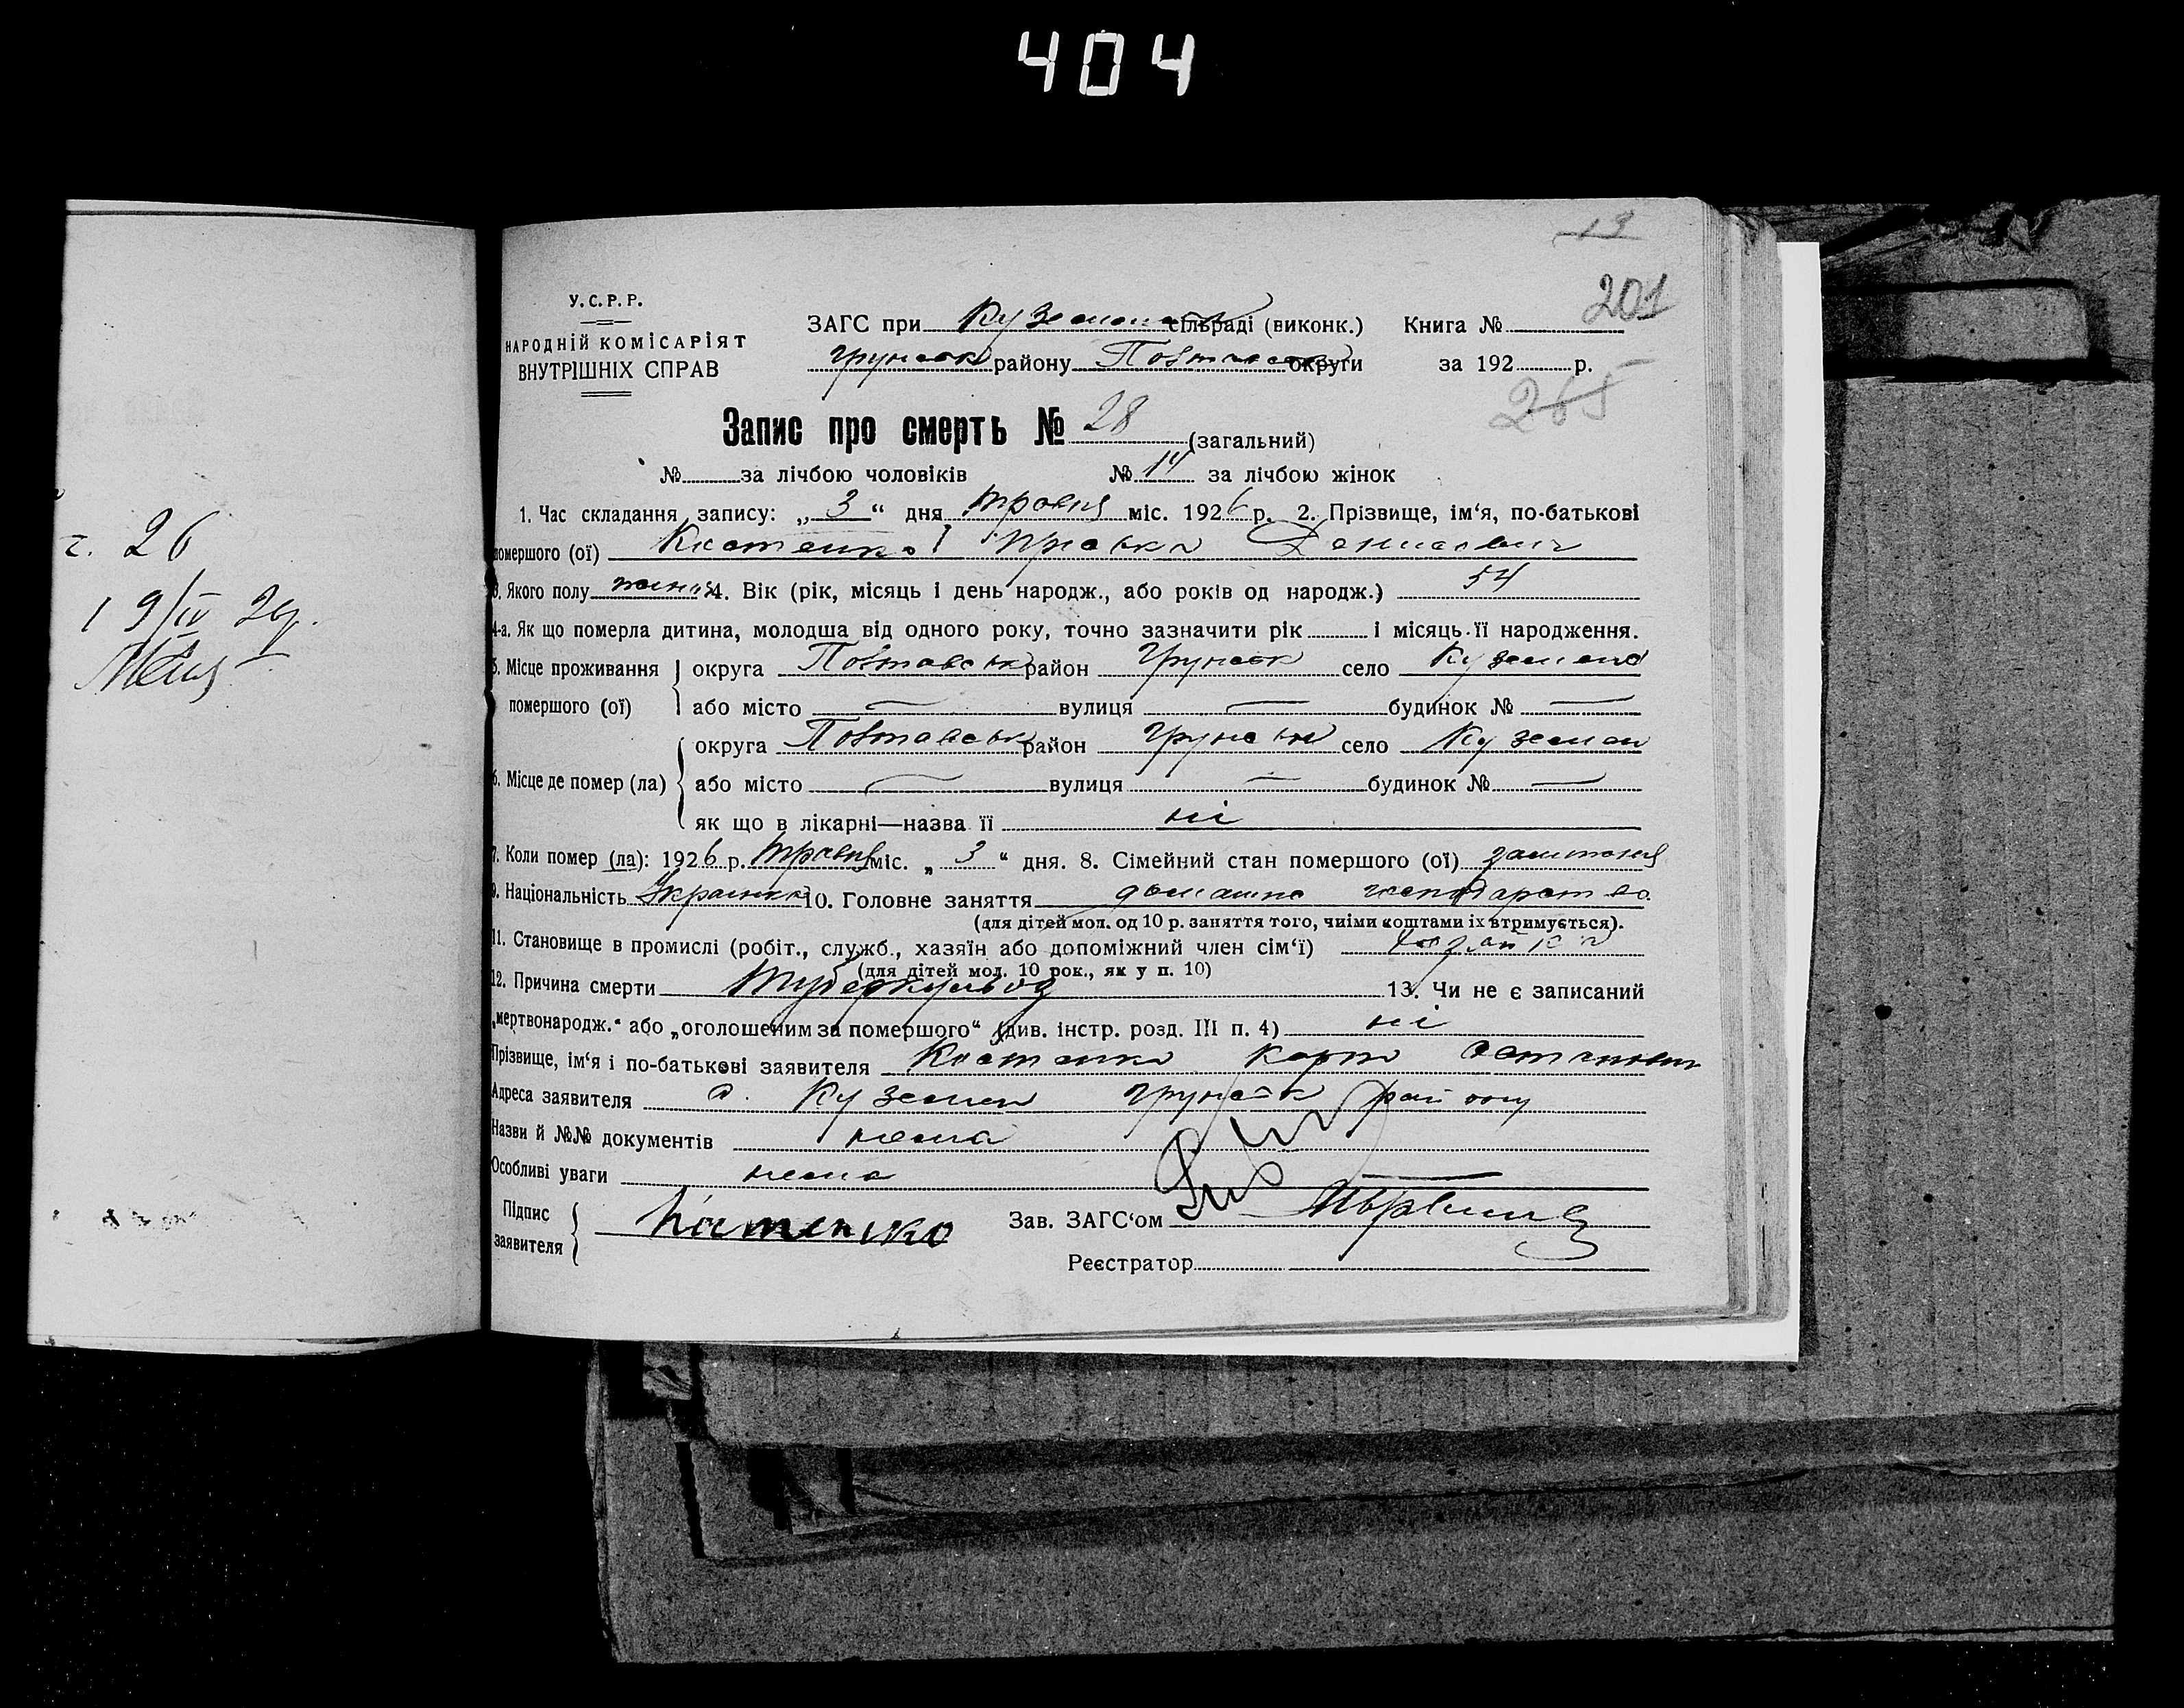 404
13
201
У.С.Р.Р.
НАРОДНІЙ КОМІСАРІЯТ
ВНУТРІШНІХ СПРАВ
ЗАГС при Куземенськ сільраді (виконк.) Книга №
Грунськ району Полтавськ округи за 192 р.
265
Запис про смерть № 28 (загальний)
№ за лічбою чоловіків № 14 за лічбою жінок
1. Час складання запису: „ 3 “ дня травня міс. 1926 р. 2. Прізвище, ім'я, по-батькові
помершого (ої) Костенко Пріська Денисович
3. Якого полу жіноч 4. Вік (рік, місяць і день народж., або років од народж.) 54
4-а. Як що померла дитина, молодша від одного року, точно зазначити рік і місяць її народження.
5. Місце проживання округа Полтавськ район Грунськ село Куземено
помершого (ої) або місто — вулиця — будинок № —
округа Полтавськ район Грунськ село Куземен
6. Місце де помер (ла) або місто — вулиця — будинок № —
як що в лікарні—назва її ні
7. Коли помер (ла): 1926 р. травня міс. „ 3 “ дня. 8. Сімейний стан помершого (ої) замужня
9. Національність Українка 10. Головне заняття домашнє господарство
(для дітей мол. од 10 р. заняття того, чиїми коштами їх втримується).
11. Становище в промислі (робіт., служб., хазяїн або допоміжний член сім'ї) хазяйка
(для дітей мол. 10 рок., як у п. 10)
12. Причина смерти туберкульоз 13. Чи не є записаний
„мертвонародж.“ або „оголошеним за помершого“ (див. інстр. розд. III п. 4) ні
Прізвище, ім'я і по-батькові заявителя Костенко Карпо
Адреса заявителя с. Куземен Грунськ району
Назви й №№ документів нема
Особливі уваги нема
Підпис заявителя Костенко Зав. ЗАГС'ом
Реєстратор
г. 26
1 9/IV 26р.